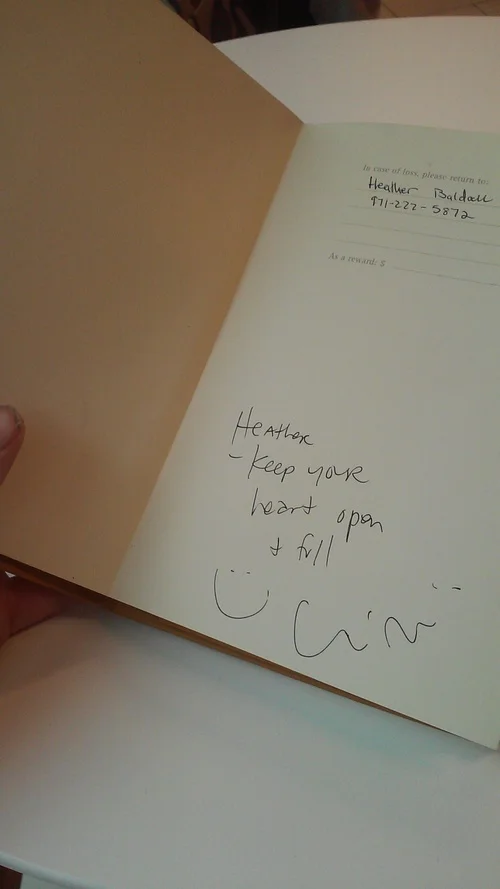 In case of loss, please return to:
Heather Baldock
971-222-5872
As a reward: $
Heather
- Keep your
heart open
+ full